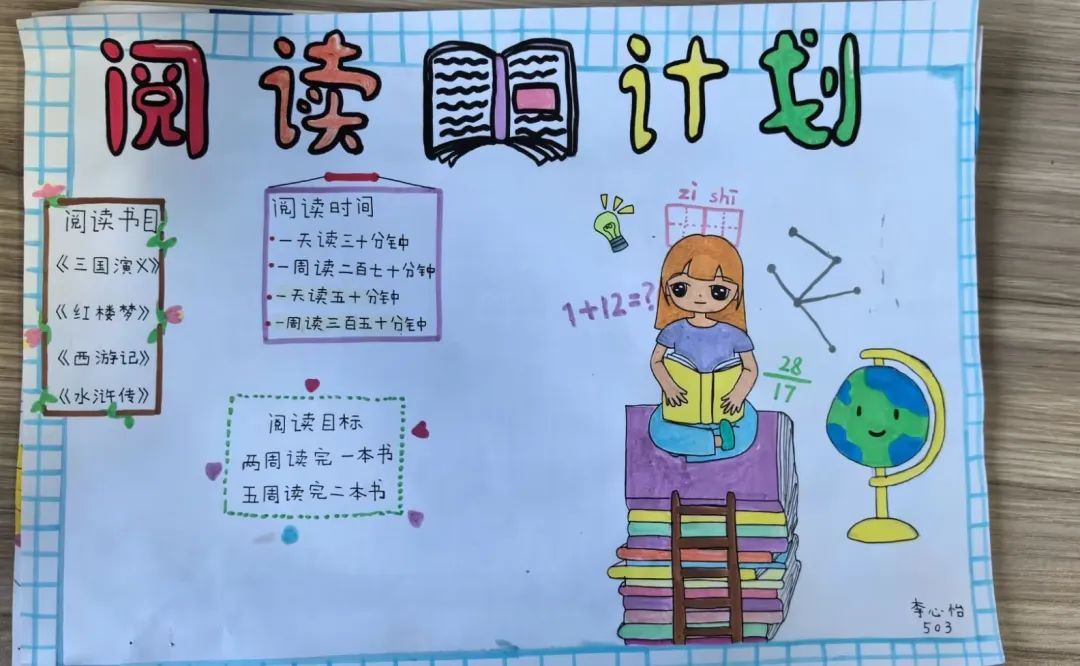 阅读计划
阅读书目
《三国演义》
《红楼梦》
《西游记》
《水浒传》
阅读时间
一天读三十分钟
一周读二百七十分钟
一天读五十分钟
一周读三百五十分钟
阅读目标
两周读完一本书
五周读完二本书
zì shī
1+12=?
28
17
李心怡
503